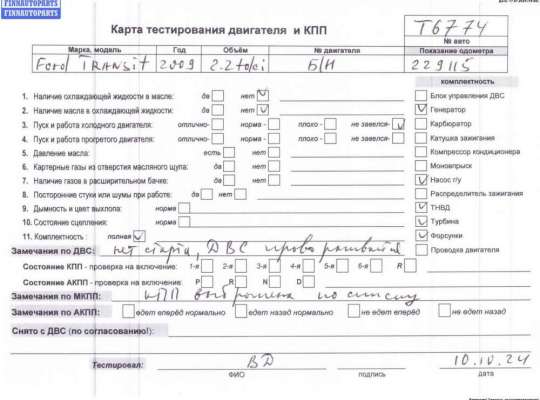 FINNAUTOPARTS
FINNAUTOPARTS
Карта тестирования двигателя и КПП
T6774
№ авто
Марка, модель Год Объём № двигателя Показание одометра
Ford TRANSit 2009 2.2tdci Б/Н 229115
комплектность
1. Наличие охлаждающей жидкости в масле: да нет Блок управления ДВС
2. Наличие масла в охлаждающей жидкости: да нет Генератор
3. Пуск и работа холодного двигателя: отлично- норма - плохо - не завелся- Карбюратор
4. Пуск и работа прогретого двигателя: отлично- норма - плохо - не завелся- Катушка зажигания
5. Давление масла: есть нет Компрессор кондиционера
6. Картерные газы из отверстия масляного щупа: да нет Моновпрыск
7. Наличие газов в расширительном бачке: да нет Насос г/у
8. Посторонние стуки или шумы при работе: да нет Распределитель зажигания
9. Дымность и цвет выхлопа: норма ТНВД
10. Состояние сцепления: норма Турбина
11. Комплектность : полная Форсунки
Замечания по ДВС: нет старта, ДВС Проводка двигателя
Состояние КПП - проверка на включение: 1-я 2-я 3-я 4-я 5-я 6-я R
Состояние АКПП - проверка на включение: P R N D
Замечания по МКПП: КПП по списку
Замечания по АКПП: едет вперёд нормально едет назад нормально не едет вперёд не едет назад
Снято с ДВС (по согласованию!):
Тестировал: ВД 10.10.24
ФИО подпись дата